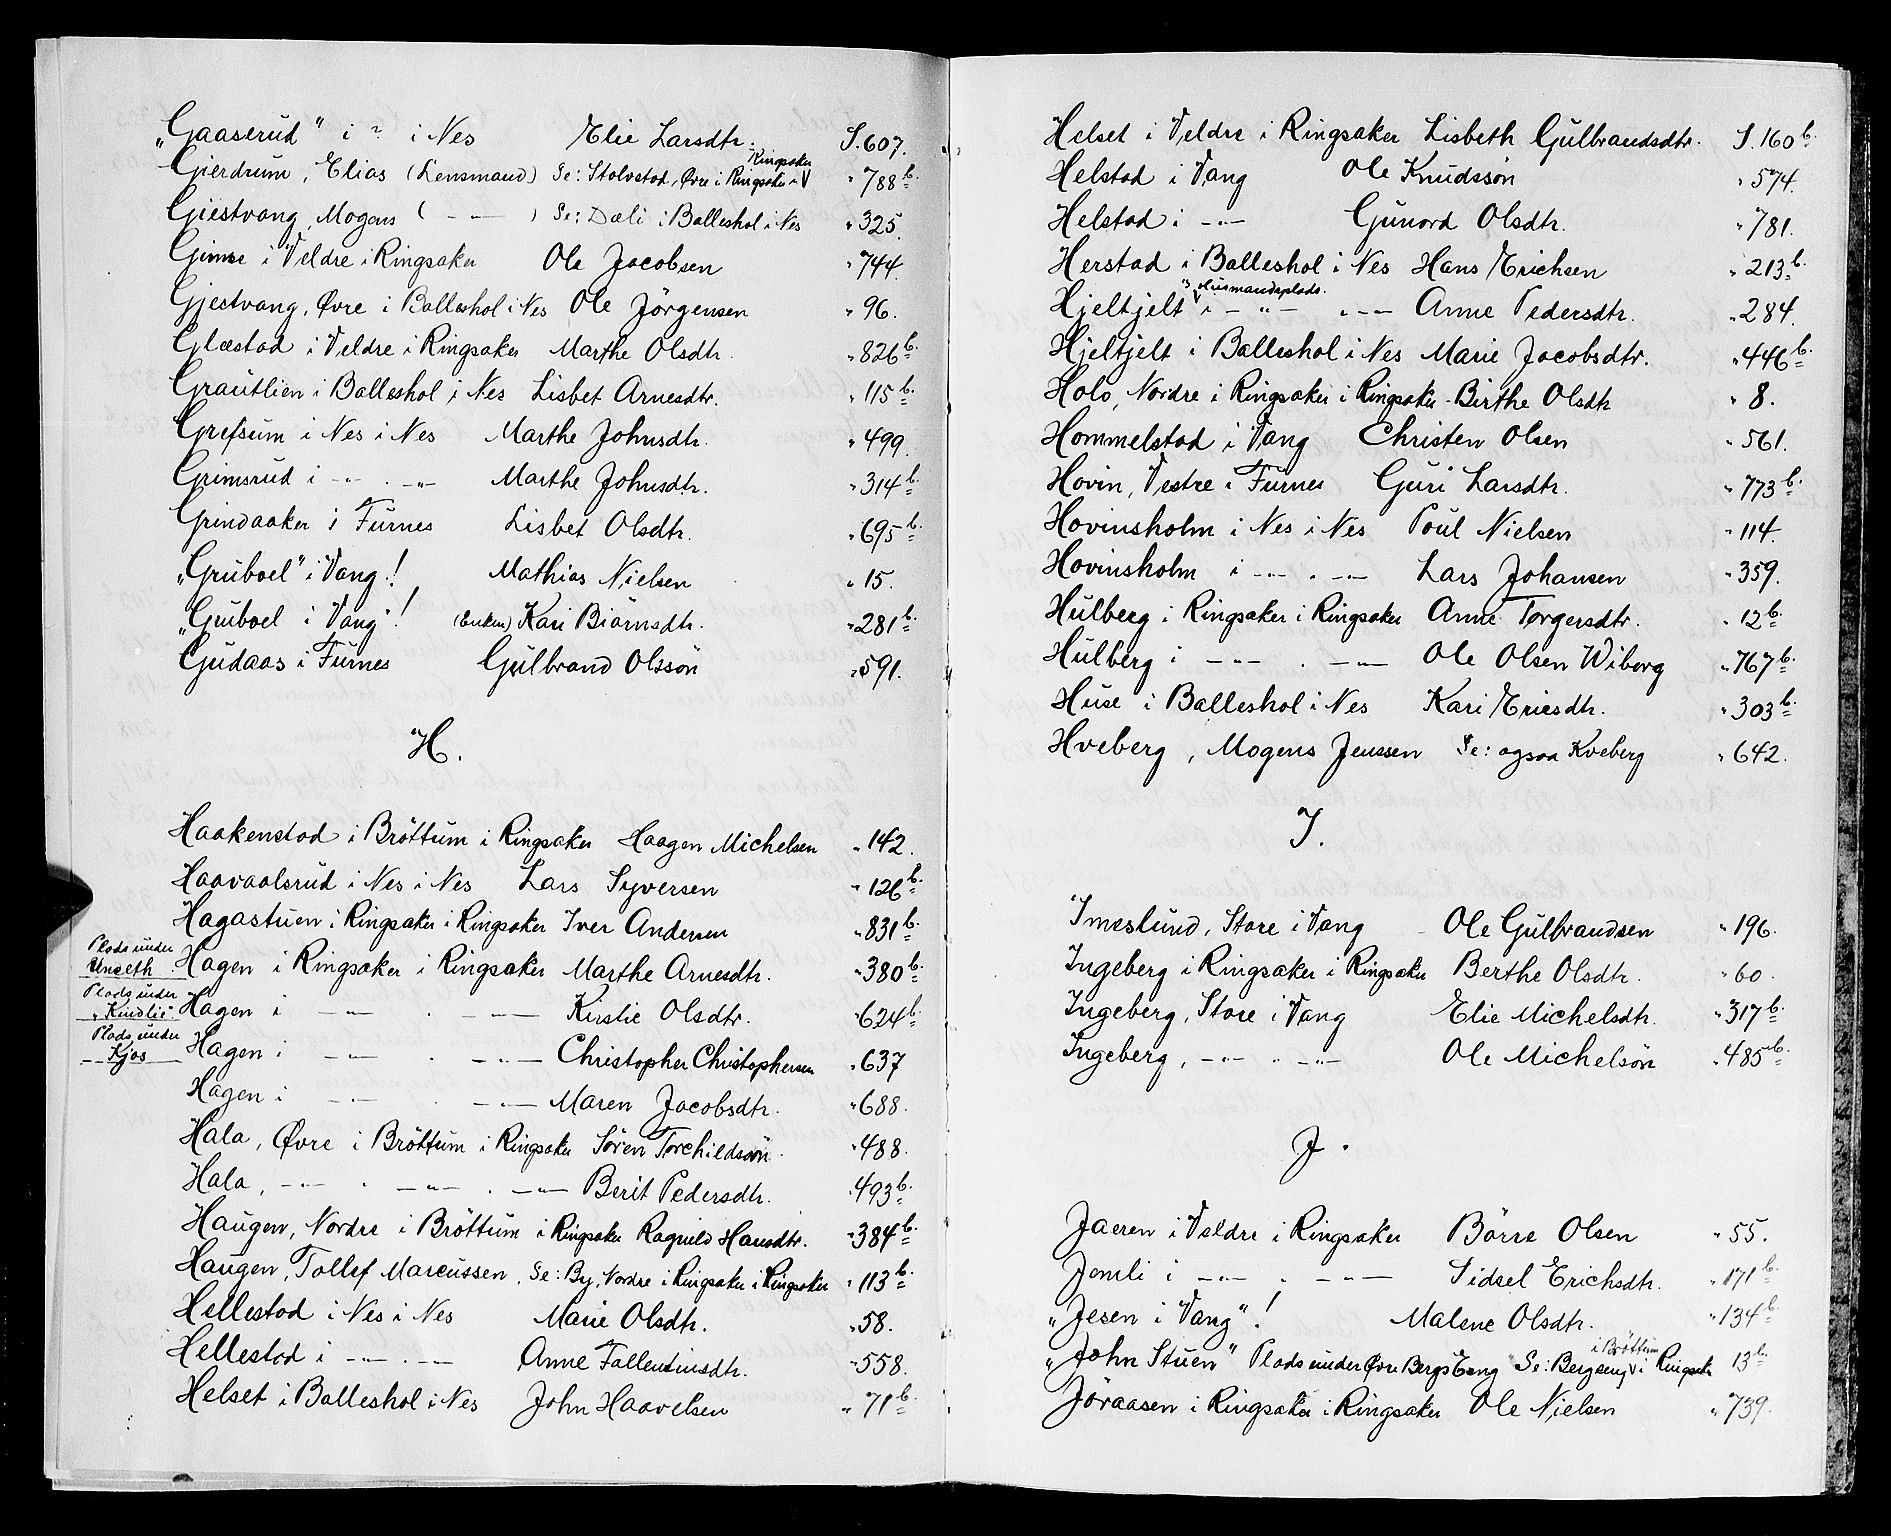 „Gaaserud" i ? i Nes Elie Larsdtr. S. 607.
Gierdrum, Elias (Lensmand) Se: Stolvstad, Øvre i Ringsaker i Ringsaker " 788 b.
Giestvang, Mogens ( — " — ) Se: Dæli i Balleshol i Nes " 325.
Gimse i Veldre i Ringsaker Ole Jacobsen " 744.
Gjestvang, Øvre i Balleshol i Nes Ole Jörgensen " 96.
Glæstad i Veldre i Ringsaker Marthe Olsdtr. " 826 b.
Grautlien i Balleshol i Nes Lisbet Arnesdtr. " 115 b.
Grefsum i Nes i Nes Marthe Johnsdtr. " 499.
Grimsrud i — " — . — " — Marthe Johnsdtr. " 314 b.
Grindaaker i Furnes Lisbet Olsdtr. " 695 b.
„Gruboel" i Vang! Mathias Nielsen " 15.
„Gruboel i Vang"! (Enken) Kari Biörnsdtr. " 281 b.
Gudaas i Furnes Gulbrand Olssön " 591.
H.
Haakenstad i Bröttum i Ringsaker Haagen Michelsen " 142.
Haavaalsrud i Nes i Nes Lars Syversen " 126 b.
Hagastuen i Ringsaker i Ringsaker Iver Andersen " 831 b.
Plads under Unseth Hagen i Ringsaker i Ringsaker Marthe Arnesdtr. " 380 b.
Plads under „Kindlie" Hagen i — " — . — " — Kirstie Olsdtr. " 624 b.
Plads under Kjos Hagen i — " — . — " — Christopher Christophersen " 637
Hagen i — " — . — " — Maren Jacobsdtr. " 688.
Hala, Øvre i Bröttum i Ringsaker Sören Torchildssön " 488.
Hala, — " — . — " — . — " — Berit Pedersdtr. " 493 b.
Haugen, Nordre i Bröttum i Ringsaker Ragnild Hansdtr. " 384 b.
Haugen, Tollef Marcussen, Se: By, Nordre i Ringsaker i Ringsaker " 113 b.
Hellestad i Nes i Nes Marie Olsdtr. " 58.
Hellestad i — " — . — " — Anne Fallentinsdtr. " 558.
Helset i Balleshol i Nes John Haavelsen " 71 b.
Helset i Veldre i Ringsaker Lisbeth Gulbrandsdtr. S. 160 b.
Helstad i Vang Ole Knudssön " 574.
Helstad i — " — Gunord Olsdtr. " 781.
Herstad i Balleshol i Nes Hans Erichsen " 213 b.
Hjeltjelt Husmandsplads. i — " — . — " — Anne Pedersdtr. " 284.
Hjeltjelt i Balleshol i Nes Marie Jacobsdtr. " 446 b.
Holo, Nordre i Ringsaker i Ringsaker Birthe Olsdtr " 8.
Hommelstad i Vang Christen Olsen " 561.
Hovin, Vestre i Furnes Guri Larsdtr. " 773 b.
Hovinsholm i Nes i Nes Poul Nielsen " 114.
Hovinsholm i — " — . — " — Lars Johansen " 359.
Hulberg i Ringsaker i Ringsaker Anne Torgersdtr. " 12 b.
Hulberg i — " — . — " — Ole Olsen Wiborg " 767 b.
Huse i Balleshol i Nes Kari Ericsdtr. " 303 b.
Hveberg, Mogens Jenssen Se: ogsaa Kveberg " 642.
I.
Imeslund, Store i Vang Ole Gulbrandsen " 196.
Ingeberg i Ringsaker i Ringsaker Berthe Olsdtr. " 60.
Ingeberg, Store i Vang Elie Michelsdtr. " 317 b.
Ingeberg, — " — . — " — Ole Michelsön " 485 b.
J.
Jaeren i Veldre i Ringsaker Börre Olsen " 55.
Jemli i — " — . — " — Sidsel Erichsdtr. " 171 b.
„Jesen i Vang"! Malene Olsdtr. " 134 b.
„John Stuen" Plads under Øvre Bergs Eng Se: Bergseng i Bröttum i Ringsaker 13 b.
Jöraasen i Ringsaker i Ringsaker Ole Nielsen " 739.